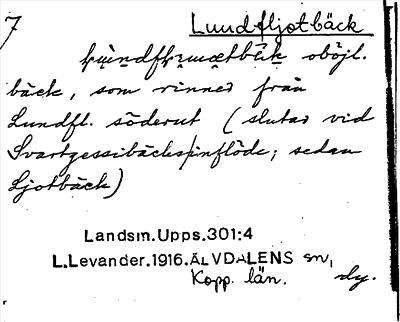 7
Lundfljotbäck
oböjl.
bäck, som rinner från
Lundfl. söderut (slutar vid
Svartgessibäcks inflöde; sedan
Ljotbäck)
Landsm.Upps.301:4
L.Levander.1916.ÄLVDALENS sn,
Kopp. län. dy.